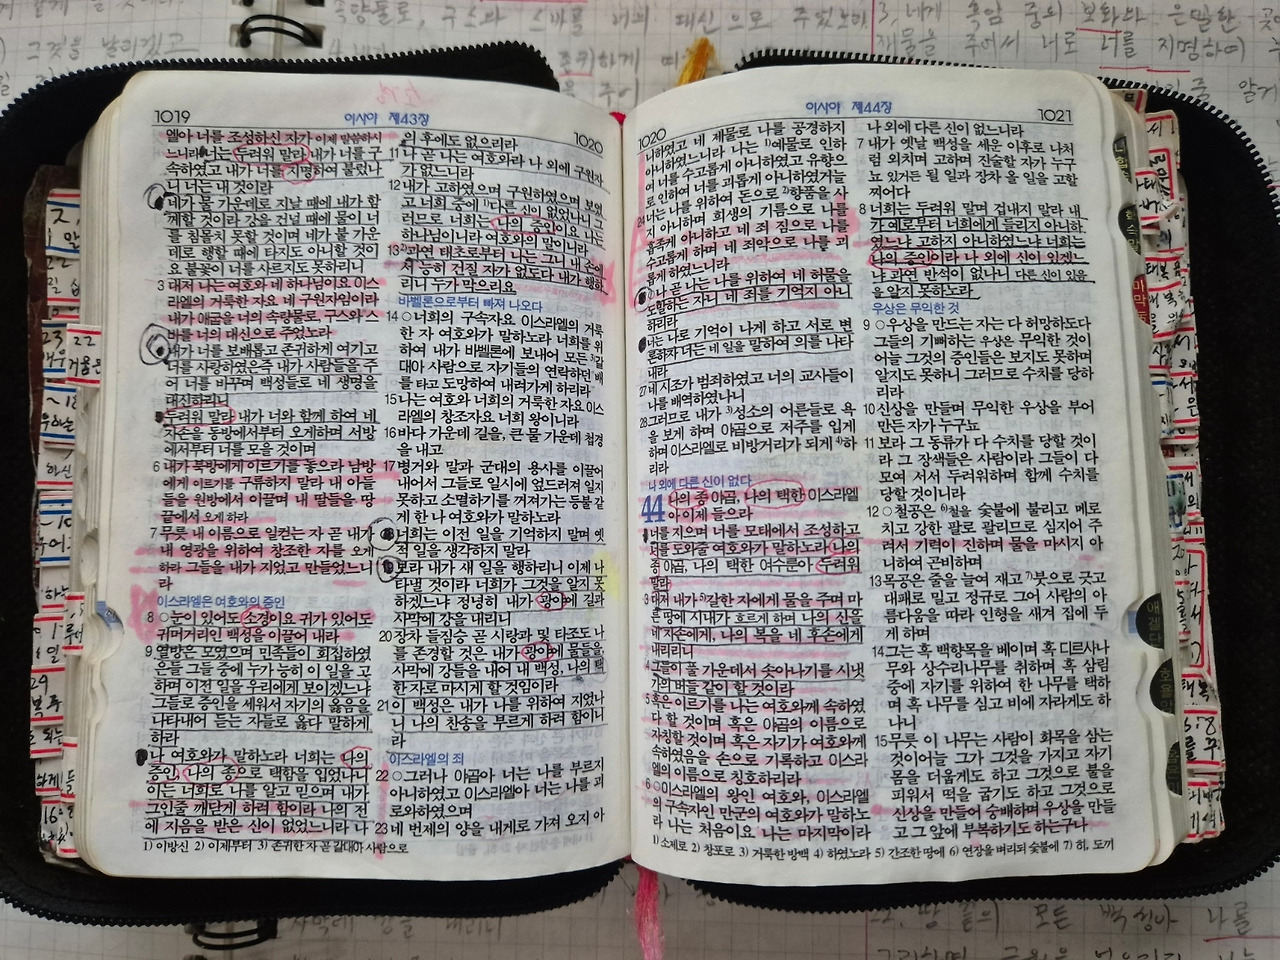 1019
이사야 제43장
1020
엘아 너를 조성하신 자가 이제 말씀하시
느니라 너는 두려워 말라 내가 너를 구
속하였고 내가 너를 지명하여 불렀나
니 너는 내 것이라
네가 물 가운데로 지날 때에 내가 함
께할 것이라 강을 건널 때에 물이 너
를 침몰치 못할 것이며 네가 불 가운
데로 행할 때에 타지도 아니할 것이
요 불꽃이 너를 사르지도 못하리니
3 대저 나는 여호와 네 하나님이요 이스
라엘의 거룩한 자요 네 구원자임이라
내가 애굽을 너의 속량물로, 구스와 스
바를 너의 대신으로 주었노라
내가 너를 보배롭고 존귀하게 여기고
너를 사랑하였은즉 내가 사람들을 주
어 너를 바꾸며 백성들로 네 생명을
대신하리니
두려워 말라 내가 너와 함께 하여 네
자손을 동방에서부터 오게하며 서방
에서부터 너를 모을 것이며
6 내가 북방에게 이르기를 놓으라 남방
에게 이르기를 구류하지 말라 내 아들
들을 원방에서 이끌며 내 딸들을 땅
끝에서 오게 하라
7 무릇 내 이름으로 일컫는 자 곧 내가
내 영광을 위하여 창조한 자를 오게
하라 그들을 내가 지었고 만들었느니
라
이스라엘은 여호와의 증인
8 ○눈이 있어도 소경이요 귀가 있어도
귀머거리인 백성을 이끌어 내라
9 열방은 모였으며 민족들이 회집하였
은들 그들 중에 누가 능히 이 일을 고
하며 이전 일을 우리에게 보이겠느냐
그들로 증인을 세워서 자기의 옳음을
나타내어 듣는 자들로 옳다 말하게
하라
나 여호와가 말하노라 너희는 나의
증인, 나의 종으로 택함을 입었나니
이는 너희로 나를 알고 믿으며 내가
그인줄 깨닫게 하려 함이라 나의 전
에 지음을 받은 신이 없었느니라 나
의 후에도 없으리라
11 나 곧 나는 여호와라 나 외에 구원자
가 없느니라
12 내가 고하였으며 구원하였으며 보였
고 너희 중에 1)다른 신이 없었나니 그
러므로 너희는 나의 증인이요 나는
하나님이니라 여호와의 말이니라
13 2)과연 태초로부터 나는 그니 내 손에
서 능히 건질 자가 없도다 내가 행하
리니 누가 막으리요
바벨론으로부터 빠져 나오다
14 ○너희의 구속자요 이스라엘의 거룩
한 자 여호와가 말하노라 너희를 위
하여 내가 바벨론에 보내어 모든 3)갈
대아 사람으로 자기들의 연락하던 배
를 타고 도망하여 내려가게 하리라
15 나는 여호와 너희의 거룩한 자요 이스
라엘의 창조자요 너희 왕이니라
16 바다 가운데 길을, 큰 물 가운데 첩경
을 내고
17 병거와 말과 군대의 용사를 이끌어
내어서 그들로 일시에 엎드러져 일지
못하고 소멸하기를 꺼져가는 등불 같
게 한 나 여호와가 말하노라
너희는 이전 일을 기억하지 말며 옛
적 일을 생각하지 말라
보라 내가 새 일을 행하리니 이제 나
타낼 것이라 너희가 그것을 알지 못
하겠느냐 정녕히 내가 광야에 길과
사막에 강을 내리니
20 장차 들짐승 곧 시랑과 및 타조도 나
를 존경할 것은 내가 광야에 물들을,
사막에 강들을 내어 내 백성, 나의 택
한 자로 마시게 할 것임이라
21 이 백성은 내가 나를 위하여 지었나
니 나의 찬송을 부르게 하려 함이니
라
이스라엘의 죄
22 ○그러나 야곱아 너는 나를 부르지
아니하였고 이스라엘아 너는 나를 괴
로와하였으며
23 네 번제의 양을 내게로 가져 오지 아
1) 이방신 2) 이제부터 3) 존귀한 자 곧 갈대아 사람으로
1020
이사야 제44장
1021
니하였고 네 제물로 나를 공경하지
아니하였느니라 나는 1)예물로 인하
여 너를 수고롭게 아니하였고 유향으
로 인하여 너를 괴롭게 아니하였거늘
너는 나를 위하여 돈으로 2)향품을 사
지 아니하며 희생의 기름으로 나를
흡족케 아니하고 네 죄 짐으로 나를
수고롭게 하며 네 죄악으로 나를 괴
롭게 하였느니라
나 곧 나는 나를 위하여 네 허물을
도말하는 자니 네 죄를 기억지 아니
하리라
너는 나로 기억이 나게 하고 서로 변
론하자 너는 네 일을 말하여 의를 나타
내라
27 네 시조가 범죄하였고 너의 교사들이
나를 배역하였나니
28 그러므로 내가 3)성소의 어른들로 욕
을 보게 하며 야곱으로 저주를 입게
하며 이스라엘로 비방거리가 되게 4)하
리라
나 외에 다른 신이 없다
44 나의 종 야곱, 나의 택한 이스라엘
아 이제 들으라
너를 지으며 너를 모태에서 조성하고
너를 도와줄 여호와가 말하노라 나의
종 야곱, 나의 택한 여수룬아 두려워
말라
3 대저 내가 5)갈한 자에게 물을 주며 마
른 땅에 시내가 흐르게 하며 나의 신을
네 자손에게, 나의 복을 네 후손에게
내리리니
4 그들이 풀 가운데서 솟아나기를 시냇
가의 버들 같이 할 것이라
5 혹은 이르기를 나는 여호와께 속하였
다 할 것이며 혹은 야곱의 이름으로
자칭할 것이며 혹은 자기가 여호와께
속하였음을 손으로 기록하고 이스라
엘의 이름으로 칭호하리라
6 ○이스라엘의 왕인 여호와, 이스라엘
의 구속자인 만군의 여호와가 말하노
라 나는 처음이요 나는 마지막이라
나 외에 다른 신이 없느니라
7 내가 옛날 백성을 세운 이후로 나처
럼 외치며 고하며 진술할 자가 누구
뇨 있거든 될 일과 장차 올 일을 고할
찌어다
8 너희는 두려워 말며 겁내지 말라 내
가 예로부터 너희에게 들리지 아니하
였느냐 고하지 아니하였느냐 너희는
나의 증인이라 나 외에 신이 있겠느
냐 과연 반석이 없나니 다른 신이 있음
을 알지 못하노라
우상은 무익한 것
9 ○우상을 만드는 자는 다 허망하도다
그들의 기뻐하는 우상은 무익한 것이
어늘 그것의 증인들은 보지도 못하며
알지도 못하니 그러므로 수치를 당하
리라
10 신상을 만들며 무익한 우상을 부어
만든 자가 누구뇨
11 보라 그 동류가 다 수치를 당할 것이
라 그 장색들은 사람이라 그들이 다
모여 서서 두려워하며 함께 수치를
당할 것이니라
12 ○철공은 6)철을 숯불에 불리고 메로
치고 강한 팔로 괄리므로 심지어 주
려서 기력이 진하며 물을 마시지 아
니하여 곤비하며
13 목공은 줄을 늘여 재고 7)붓으로 긋고
대패로 밀고 정규로 그어 사람의 아
름다움을 따라 인형을 새겨 집에 두
게 하며
14 그는 혹 백향목을 베이며 혹 디르사나
무와 상수리나무를 취하며 혹 삼림
중에 자기를 위하여 한 나무를 택하
며 혹 나무를 심고 비에 자라게도 하
나니
15 무릇 이 나무는 사람이 화목을 삼는
것이어늘 그가 그것을 가지고 자기
몸을 더웁게도 하고 그것으로 불을
피워서 떡을 굽기도 하고 그것으로
신상을 만들어 숭배하며 우상을 만들
고 그 앞에 부복하기도 하는구나
1) 소제로 2) 창포로 3) 거룩한 방백 4) 하였노라 5) 간조한 땅에 6) 연장을 벼리되 숯불에 7) 히, 도끼